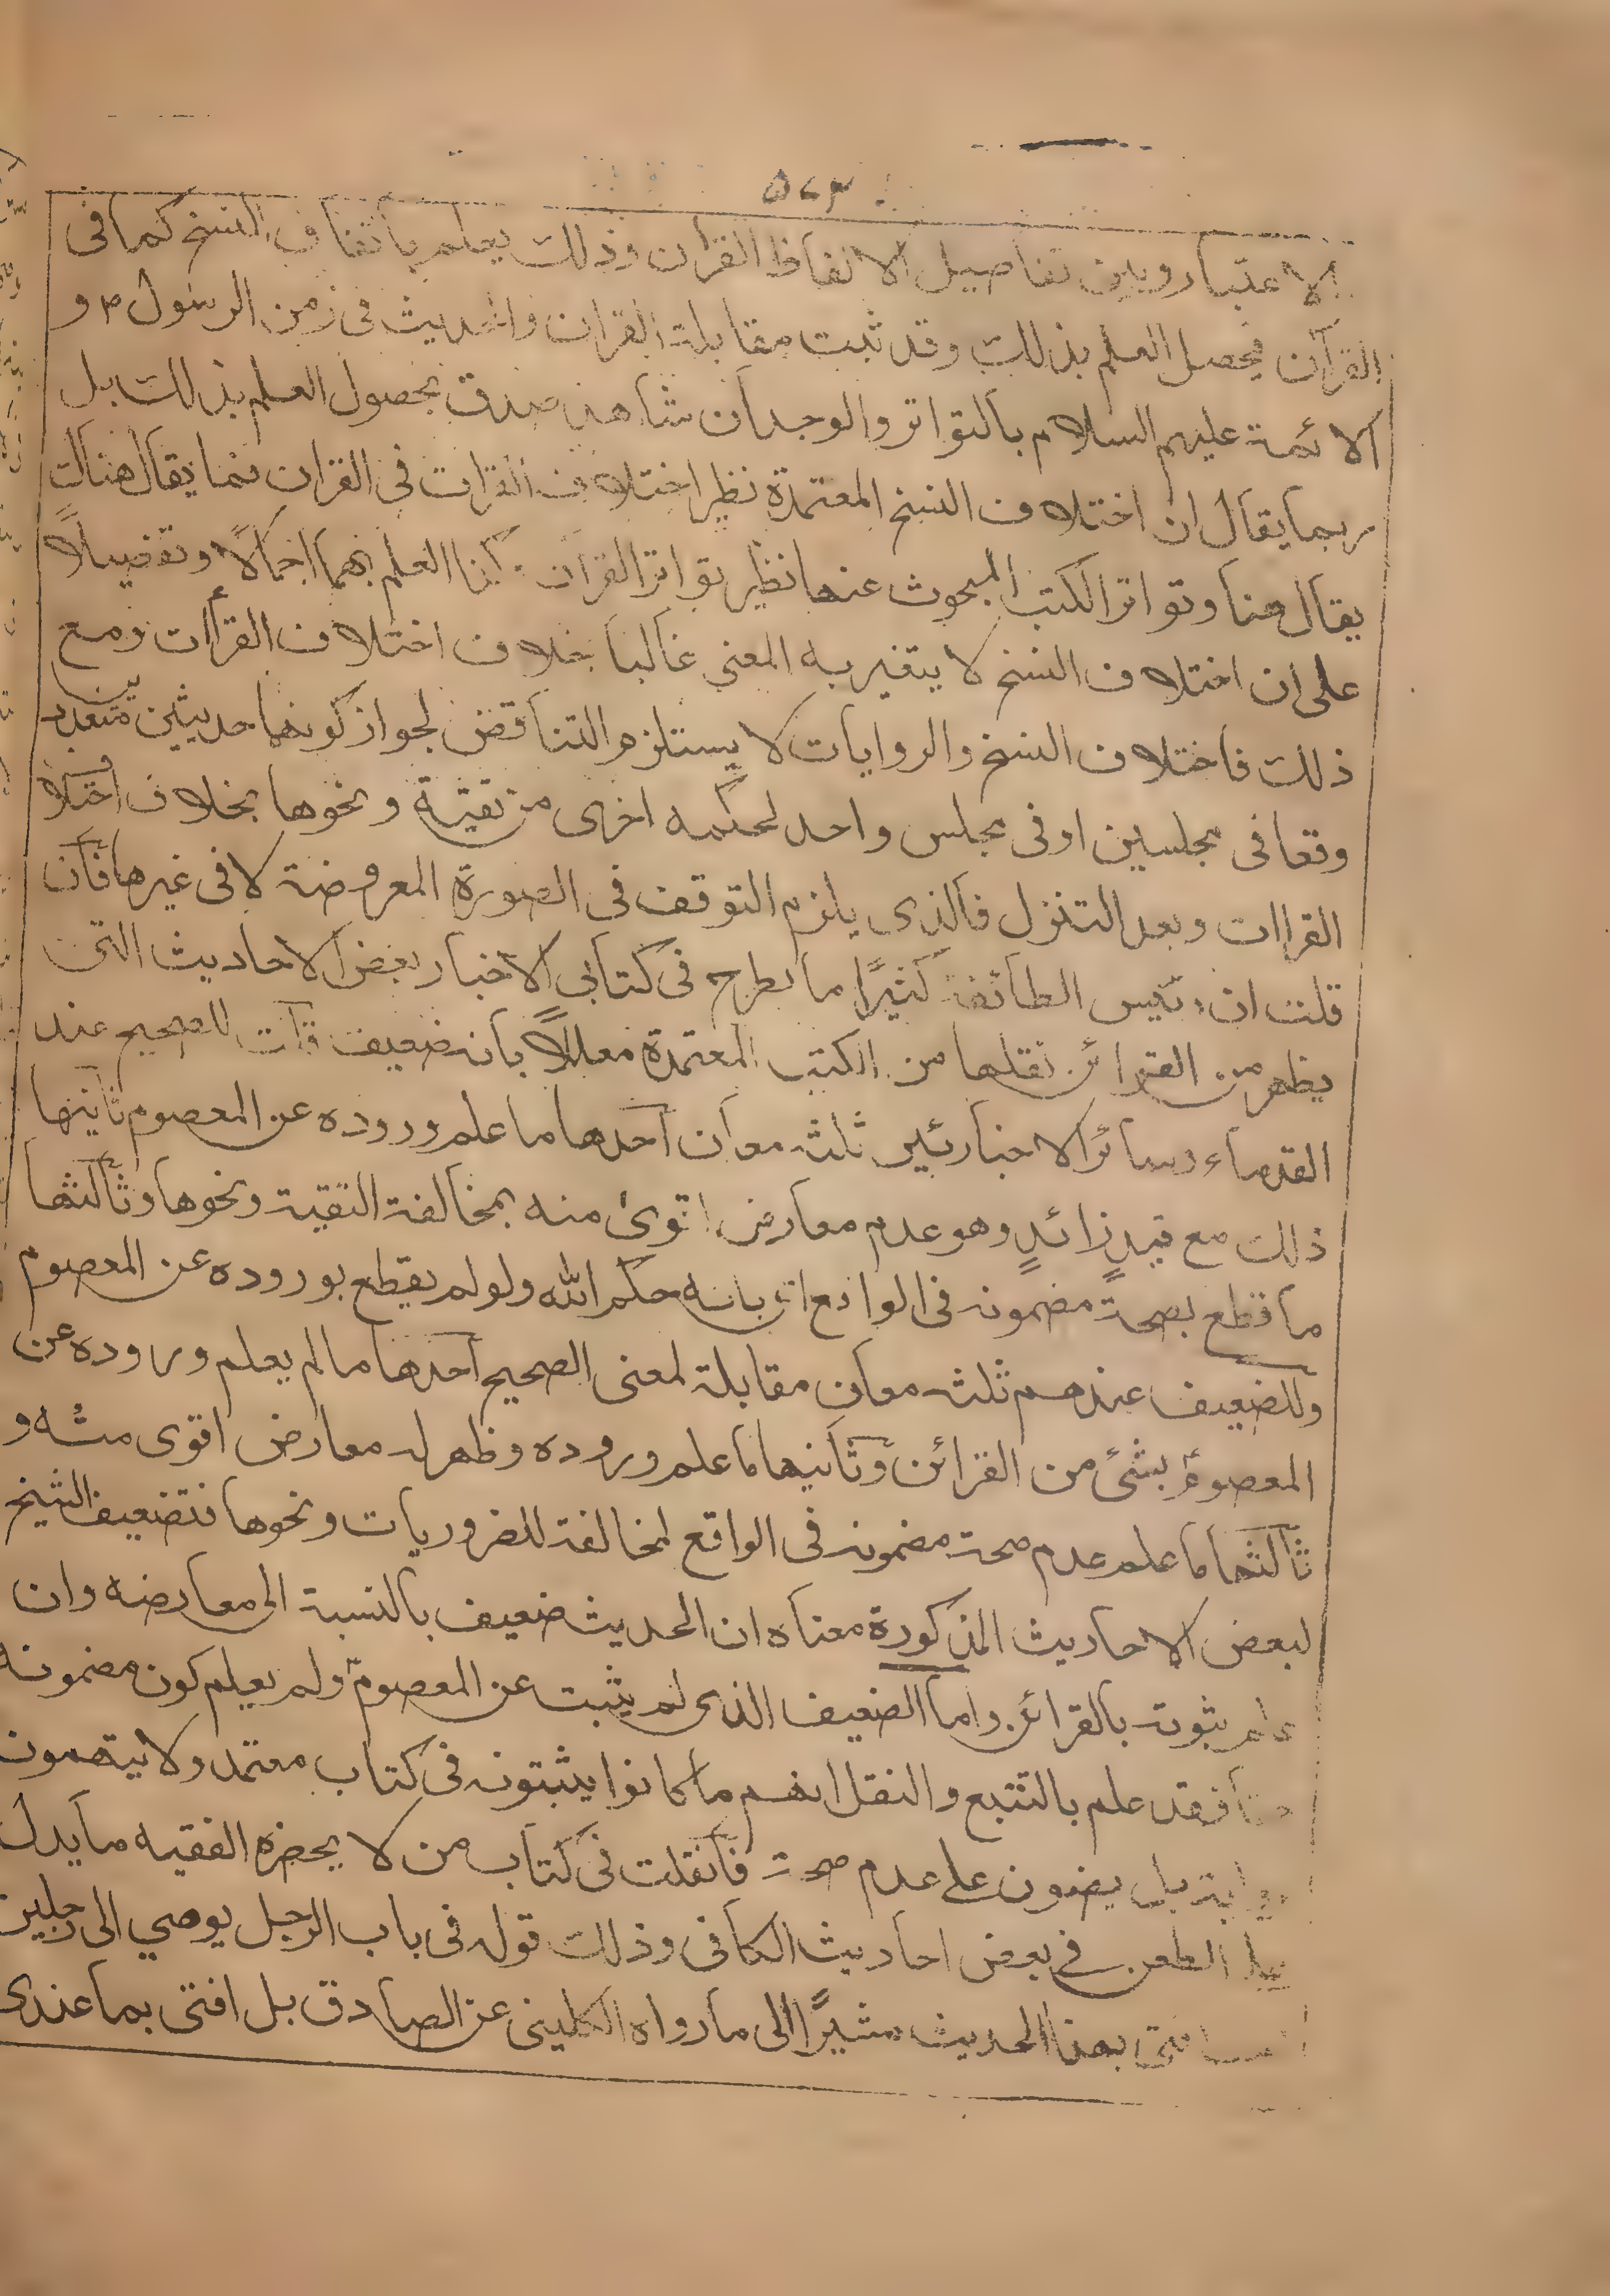 ۵۲۳
الاعتبار وبين تفاصيل الالفاظ القران وذلك يعلم باتفاق النسخ كما فى
القرآن فيحصل العلم بذلك وقد ثبت مقابلة القران والحديث فى زمن الرسول ص و
الائمة عليهم السلام بالتواتر والوجدان شاهد صدق بحصول العلم بذلك بل
ربما يقال ان اختلاف النسخ المعتمدة نظير اختلاف القرات فى القران فما يقال هناك
يقال هنا وتواتر الكتب المبحوث عنها نظير تواتر القران كذا العلم بهما اجمالًا وتفصيلًا
على ان اختلاف النسخ لا يتغير به المعنى غالبا بخلاف اختلاف القرأات ومع
ذلك فاختلاف النسخ والروايات لا يستلزم التناقض لجواز كونهما حديثين متعددين
وقعا فى مجلسين او فى مجلس واحد لحكمه اخرى من تقيّة ونحوها بخلاف اختلاف
القراات وبعد التنزل فالذى يلزم التوقف فى الصورة المعروضة لا فى غيرها فان
قلت ان رئيس الطائفة كثيرًا ما يطرح فى كتابى الاخبار بعض الاحاديث التى
يظهر من القرائن نقلها من الكتب المعتمدة معللًا بانه ضعيف قلت للصحيح عند
القدماء وسائر الاخباريين ثلث معان احدها ما علم وروده عن المعصوم ثانيها
ذلك مع قيدٍ زائدٍ وهو عدم معارض اقوى منه بمخالفة التقية ونحوها وثالثها
ما قطع بصحة مضمونه فى الواقع اى بانه حكم الله ولو لم يقطع بوروده عن المعصوم
وللضعيف عندهم ثلث معان مقابلة لمعنى الصحيح احدها ما لم يعلم وروده عن
المعصوم بشئ من القرائن وثانيها ما علم وروده وظهر له معارض اقوى منه و
ثالثها ما علم عدم صحة مضمونه فى الواقع لمخالفة للضروريات ونحوها فتضعيف الشيخ
لبعض الاحاديث المذكورة معناه ان الحديث ضعيف بالنسبة الى معارضه وان
علم ثبوته بالقرائن واما الضعيف الذى لم يثبت عن المعصوم ولم يعلم كون مضمونه
حقا فقد علم بالتتبع والنقل انهم ما كانوا يثبتونه فى كتاب معتمد ولا يهتمون
بروايته بل ينصون على عدم صحته فان قلت فى كتاب من لا يحضره الفقيه ما يدل
على الطعن فى بعض احاديث الكافى وذلك قوله فى باب الرجل يوصي الى رجلين
افتى بهذا الحديث مشيرًا الى ما رواه الكلينى عن الصادق بل افتى بما عندى